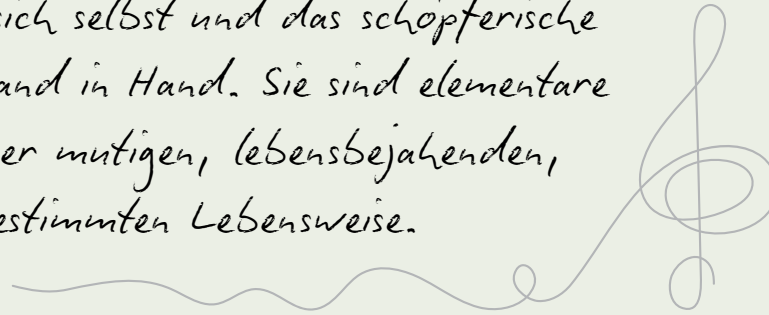 sich selbst und das schöpferische
and in Hand. Sie sind elementare
er mutigen, lebensbejahenden,
estimmten Lebensweise.